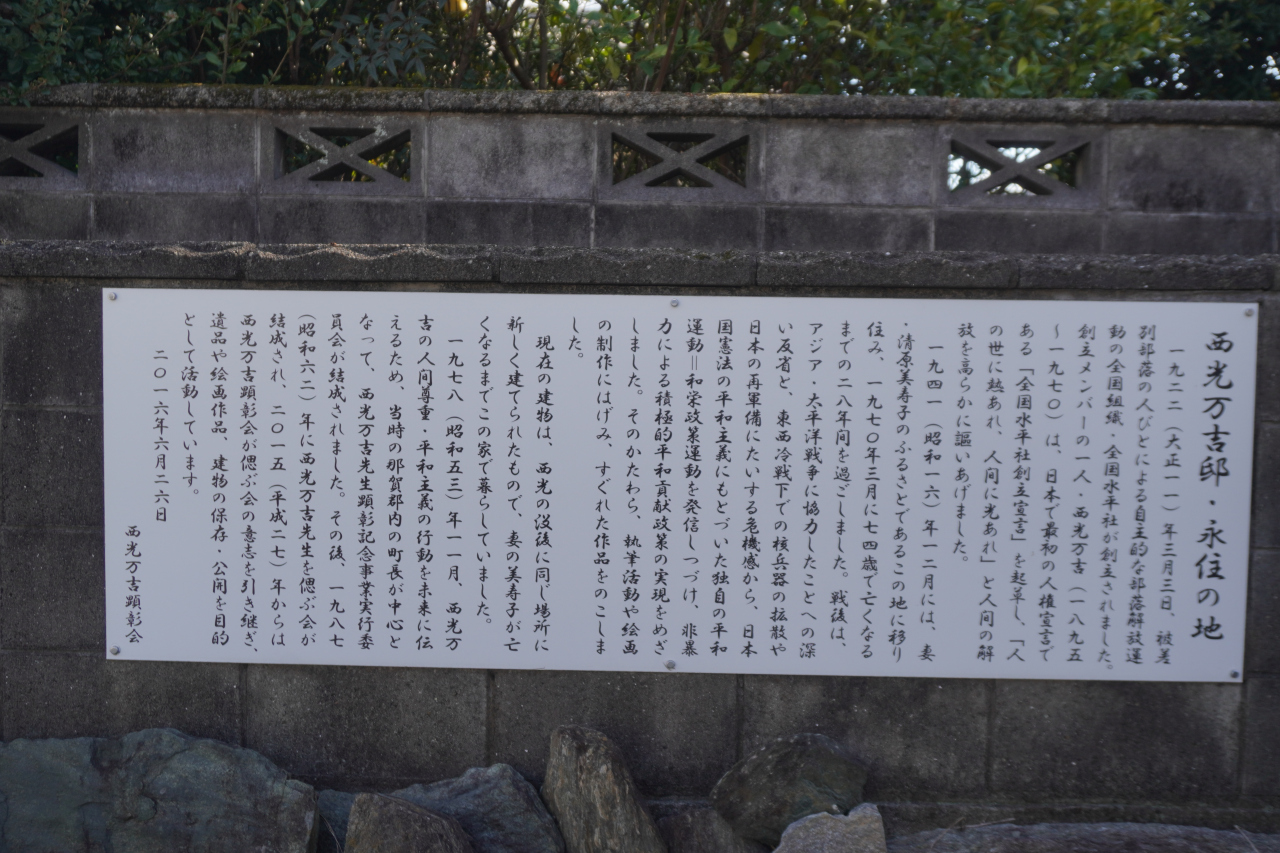 西光万吉邸・永住の地
一九二二（大正一一）年三月三日、被差
別部落の人びとによる自主的な部落解放運
動の全国組織・全国水平社が創立されました。
創立メンバーの一人・西光万吉（一八九五
～一九七〇）は、日本で最初の人権宣言で
ある「全国水平社創立宣言」を起草し、「人
の世に熱あれ、人間に光あれ」と人間の解
放を高らかに謳いあげました。
一九四一（昭和一六）年一二月には、妻
・清原美寿子のふるさとであるこの地に移り
住み、一九七〇年三月に七四歳で亡くなる
までの二八年間を過ごしました。戦後は、
アジア・太平洋戦争に協力したことへの深
い反省と、東西冷戦下での核兵器の拡散や
日本の再軍備にたいする危機感から、日本
国憲法の平和主義にもとづいた独自の平和
運動＝和栄政策運動を発信しつづけ、非暴
力による積極的平和貢献政策の実現をめざ
しました。そのかたわら、執筆活動や絵画
の制作にはげみ、すぐれた作品をのこしま
した。
現在の建物は、西光の没後に同じ場所に
新しく建てられたもので、妻の美寿子が亡
くなるまでこの家で暮らしていました。
一九七八（昭和五三）年一一月、西光万
吉の人間尊重・平和主義の行動を未来に伝
えるため、当時の那賀郡内の町長が中心と
なって、西光万吉先生顕彰記念事業実行委
員会が結成されました。その後、一九八七
（昭和六二）年に西光万吉先生を偲ぶ会が
結成され、二〇一五（平成二七）年からは
西光万吉顕彰会が偲ぶ会の意志を引き継ぎ、
遺品や絵画作品、建物の保存・公開を目的
として活動しています。
二〇一六年六月二六日
西光万吉顕彰会